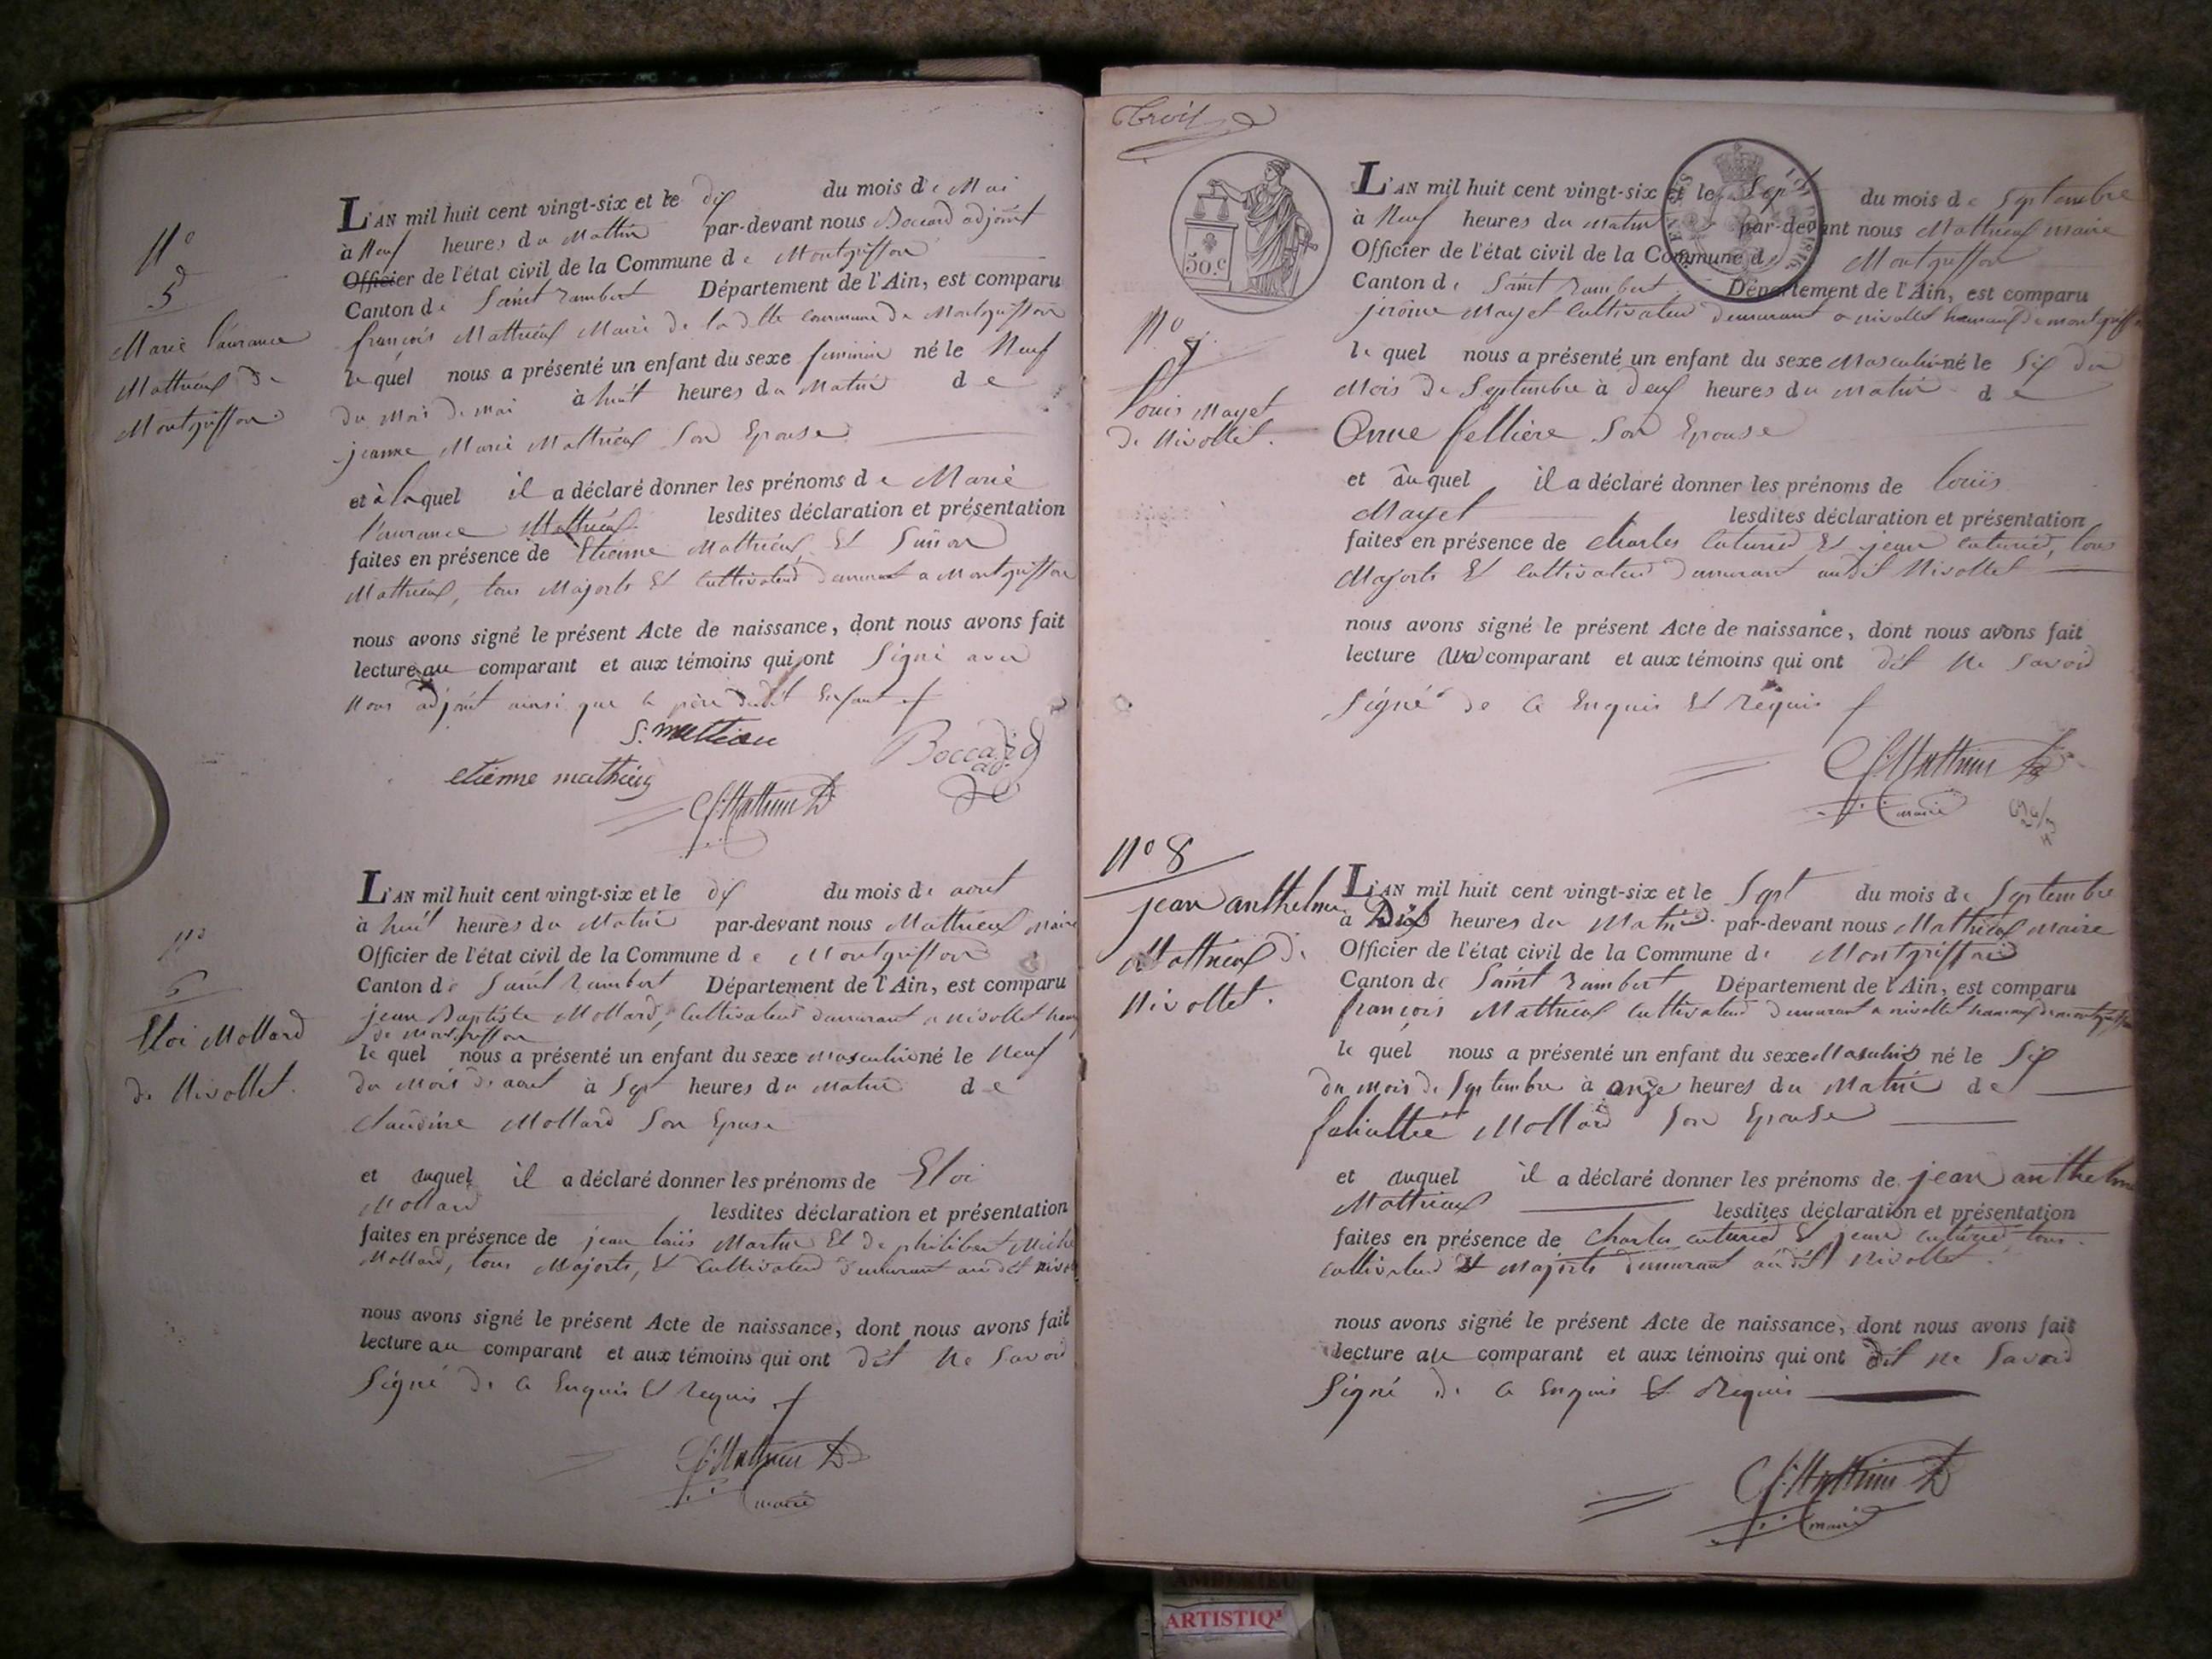 N°
5
Marie laurance
Mathieux de
Montgriffon
L'AN mil huit cent vingt-six et le dix du mois de Mai
à Neuf heures du Mattin par-devant nous Boccard adjoint
Officier de l'état civil de la Commune de Montgriffon
Canton de Saint Rambert Département de l'Ain, est comparu
françois Mathieux Maire de la dtte commune de Montgriffon
le quel nous a présenté un enfant du sexe feminin né le Neuf
du Mois de mai à huit heures du Matin de
jeanne Marie Mathieux Son Epouse
et à laquel il a déclaré donner les prénoms de Marie
laurance Mathieux lesdites déclaration et présentation
faites en présence de Etienne Mathieux Et Simon
Mathieux, tous Majorts Et Cultivateurs demurant a Montgriffon
nous avons signé le présent Acte de naissance, dont nous avons fait
lecture au comparant et aux témoins qui ont Signé avec
Nous adjoint ainsi que le père dudit Enfant
S. mathieu
Boccard
adj.
etienne mathieux
f. Mathieux
N°
6
Eloi Mollard
de Nivollet.
L'AN mil huit cent vingt-six et le dix du mois de aout
à huit heures du Matin par-devant nous Mathieux Maire
Officier de l'état civil de la Commune de Montgriffon
Canton de Saint Rambert Département de l'Ain, est comparu
jean Baptiste Mollard, Cultivateur demurant a nivollet ham
de Montgriffon
le quel nous a présenté un enfant du sexe masculin né le Neuf
du Mois de aout à Sept heures du Matin de
Claudine Mollard Son Epouse
et auquel il a déclaré donner les prénoms de Eloi
Mollard lesdites déclaration et présentation
faites en présence de jean louis Martin Et de philibert Miche
Mollard, tous Majorts, Et Cultivateur demurant audit nivol
nous avons signé le présent Acte de naissance, dont nous avons fait
lecture au comparant et aux témoins qui ont dit Ne Savoir
Signé de ce Enquis Et Requis
f. Mathieux
maire
trois
50.c
N°
7
Louis Mayet
de Nivollet.
L'AN mil huit cent vingt-six et le Sept du mois de Septembre
à Neuf heures du Matin par-devant nous Mathieux maire
Officier de l'état civil de la Commune de Montgriffon
Canton de Saint Rambert Département de l'Ain, est comparu
jerôme Mayet Cultivateur demurant a nivollet hameaux de montgriffon
le quel nous a présenté un enfant du sexe Masculin né le Six du
Mois de Septembre à deux heures du matin de
Anne felliere Son Epouse
et auquel il a déclaré donner les prénoms de louis
Mayet lesdites déclaration et présentation
faites en présence de Charles Et jean tous
Majorts Et Cultivateur demurant audit Nivollet
nous avons signé le présent Acte de naissance, dont nous avons fait
lecture au comparant et aux témoins qui ont dit Ne Savoir
Signé de ce Enquis Et Requis
f. Mathieux
maire
N° 8
jean anthelme
Mathieux de
Nivollet.
L'AN mil huit cent vingt-six et le Sept du mois de Septembre
à Dix heures du Matin par-devant nous Mathieux maire
Officier de l'état civil de la Commune de Montgriffon
Canton de Saint Rambert Département de l'Ain, est comparu
françois Mathieux Cultivateur demurant a nivollet hameaux de montgriffon
le quel nous a présenté un enfant du sexe Masculin né le Six
du mois de Septembre à onze heures du Matin de
Mollard Son Epouse
et auquel il a déclaré donner les prénoms de jean anthelme
Mathieux lesdites déclaration et présentation
faites en présence de Charles Et jean tous
cultivateur Et Majorts demurant audit Nivollet
nous avons signé le présent Acte de naissance, dont nous avons fait
lecture au comparant et aux témoins qui ont dit Ne Savoir
Signé de ce Enquis Et Requis
f. Mathieux
maire
ARTISTIQ